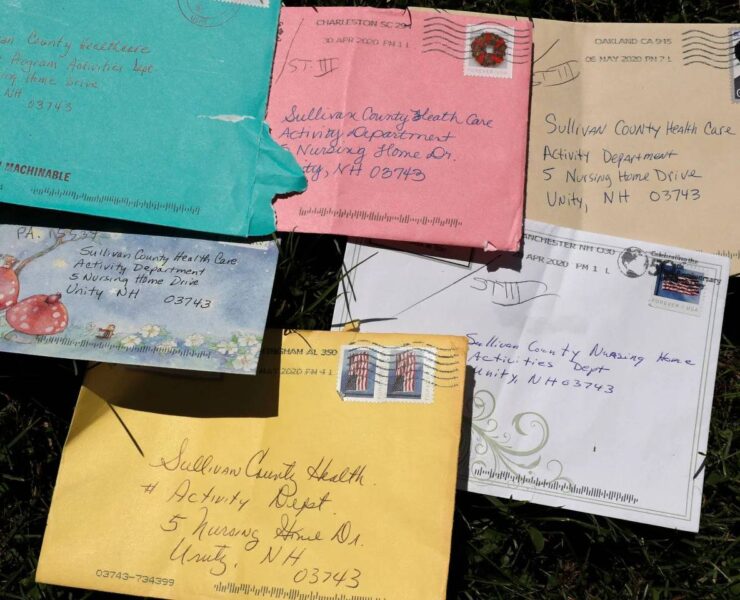 County Healthcare
Program Activities Dept
Home Drive
NH
03743
MACHINABLE
CHARLESTON SC 294
30 APR 2020 PM 1 L
ST. III
FOREVER USA
Sullivan County Heath Care
Activity Department
5 Nursing Home Dr.
NH 03743
OAKLAND CA 945
06 MAY 2020 PM 7 L
Sullivan County Health Care
Activity Department
5 Nursing Home Drive
Unity, NH 03743
PA.
Sullivan County Health Care
Activity Department
5 Nursing Home Drive
Unity NH 03743
NCHESTER NH 030
APR 2020 PM 1 L
Celebrating the
ST III
FOREVER USA
Sullivan County Nursing Home
Activities Dept
Unity, NH 03743
NGHAM AL 350
2020 PM 4 L
Sullivan County Health
# Activity Dept.
5 Nursing Home Dr.
Unity, NH
03743
03743-734399